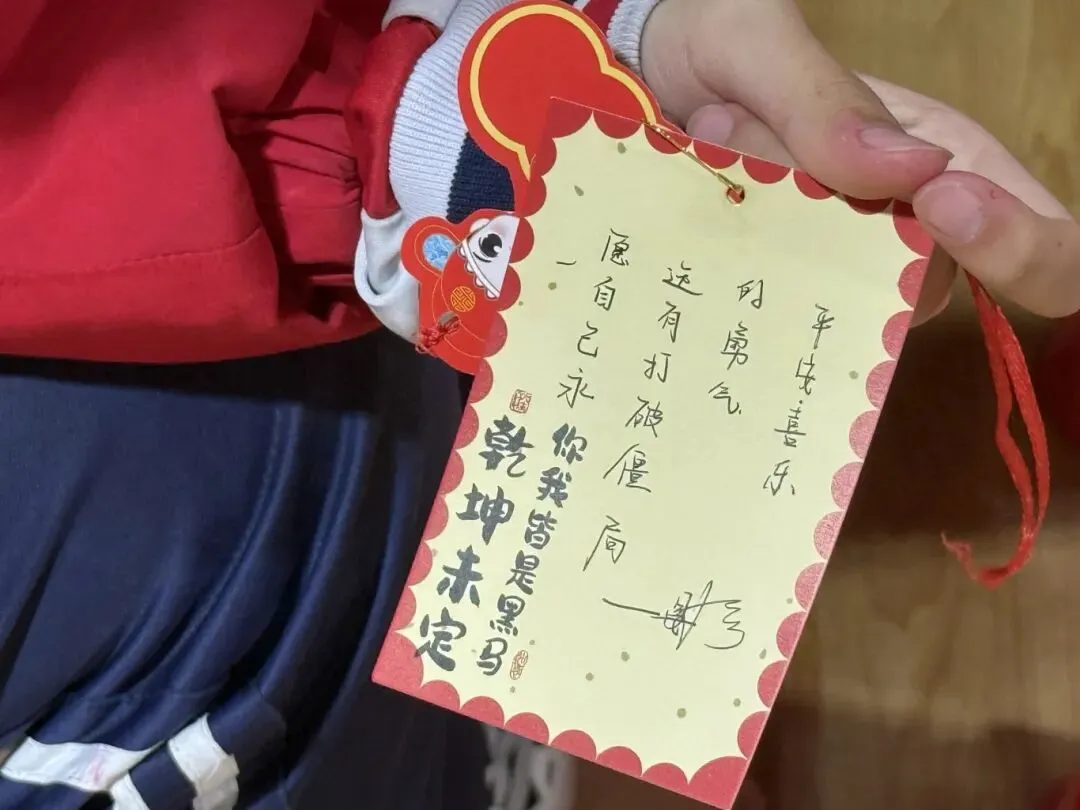 乾坤未定
你我皆是黑马
愿自己永
远有打破僵局
的勇气
平安喜乐